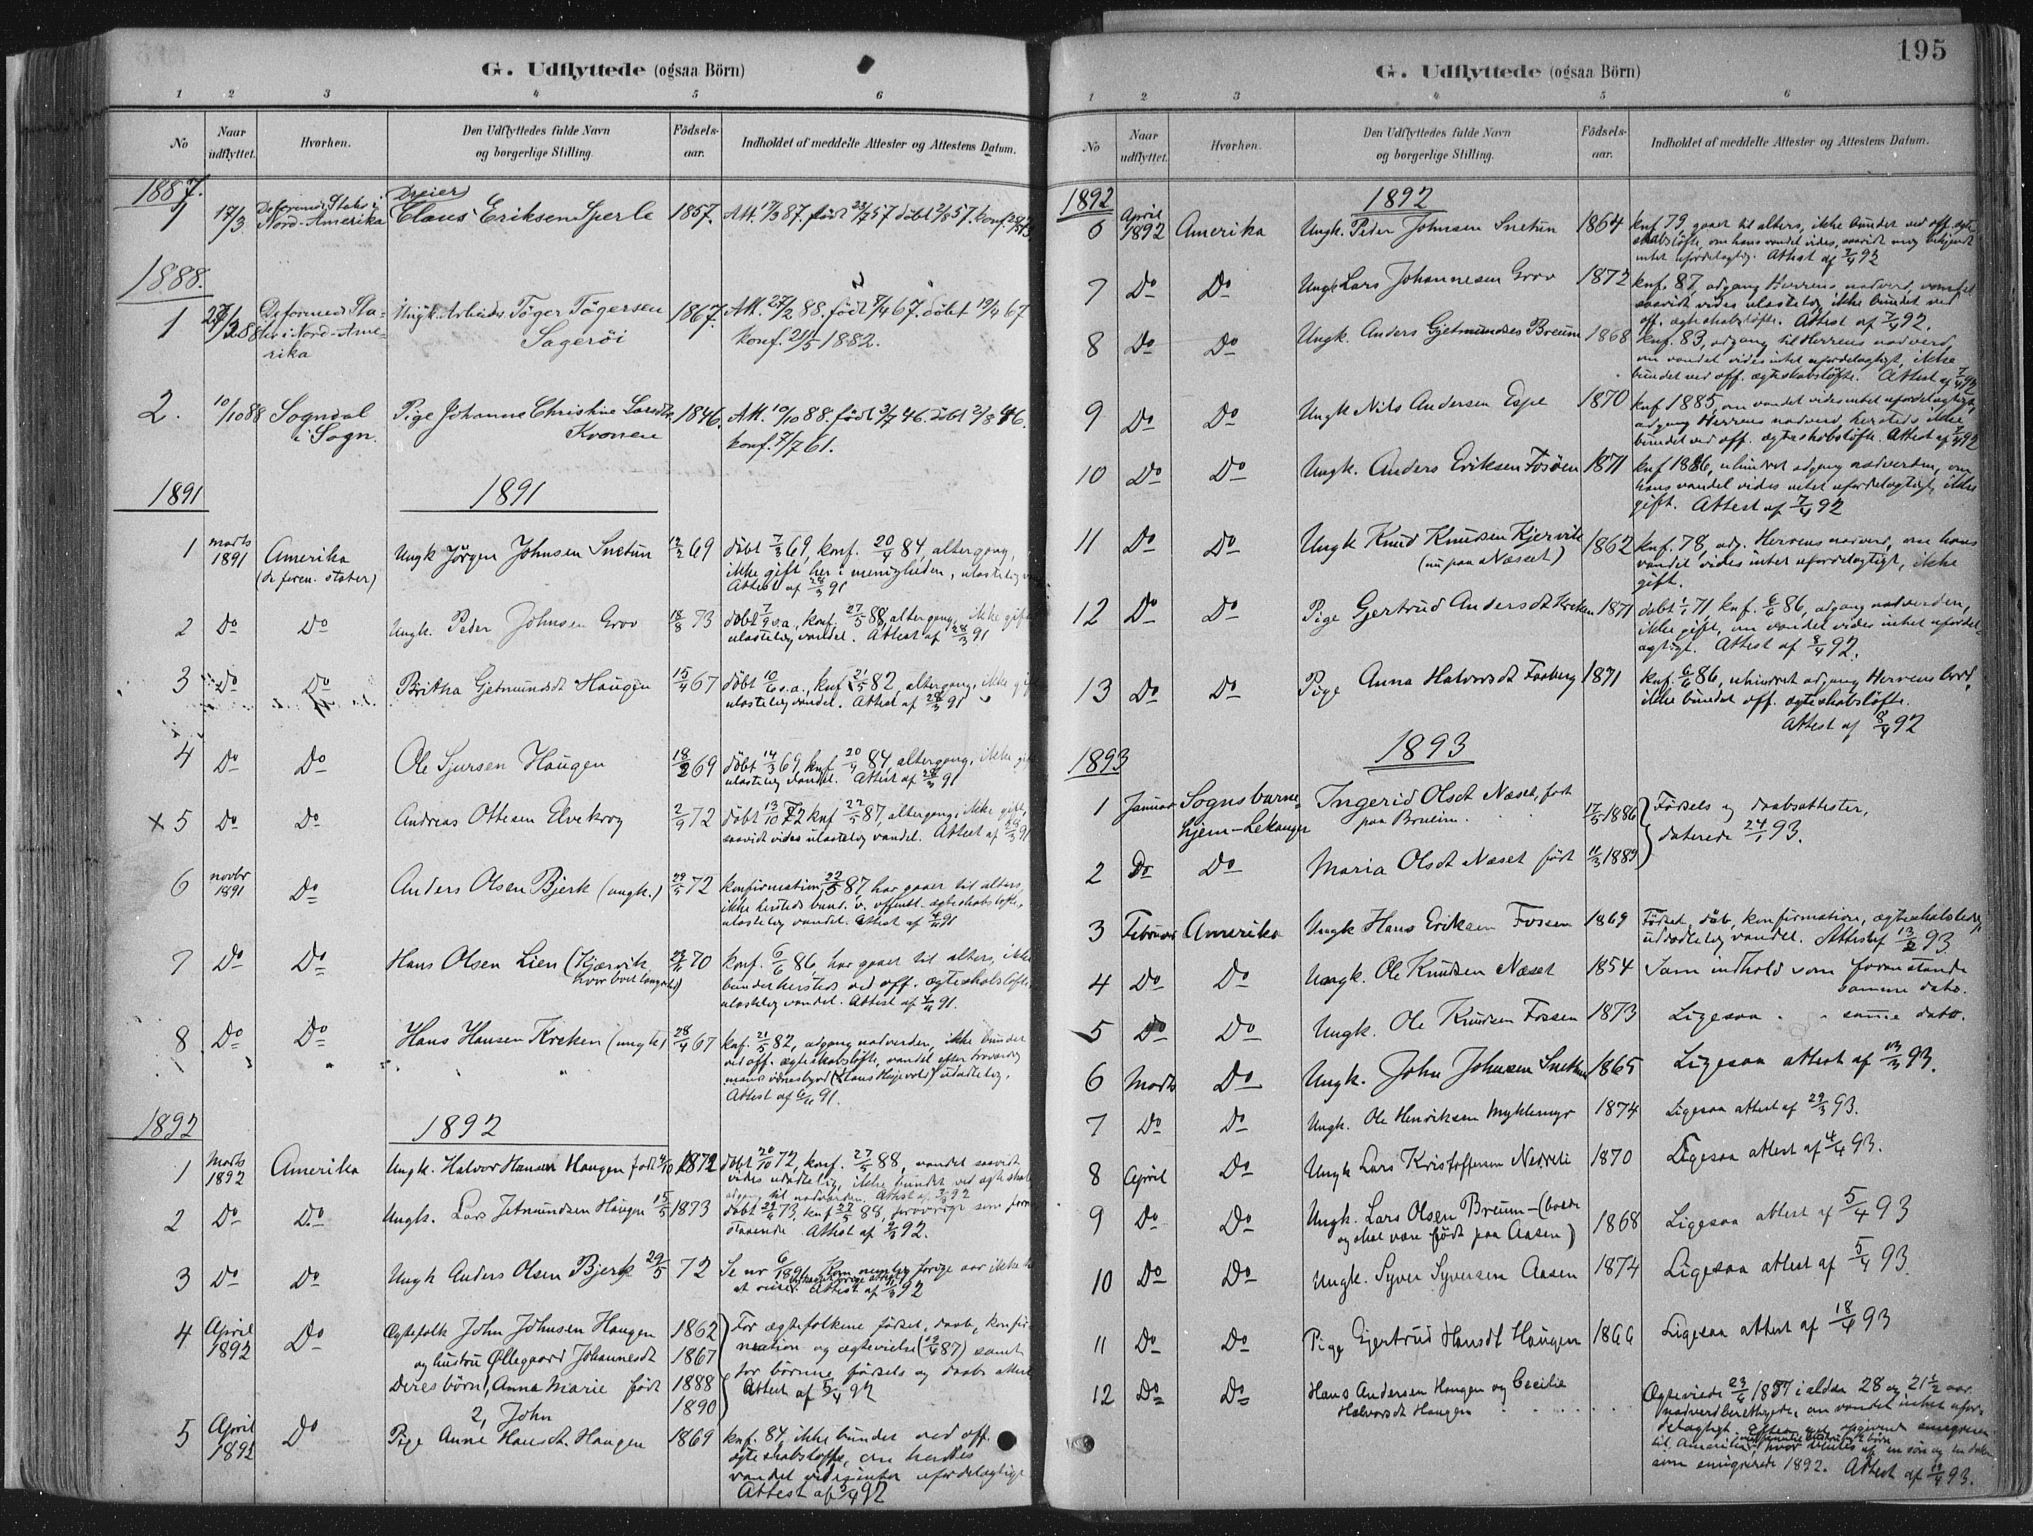 G. Udflyttede (ogsaa Börn)
1 2 3 4 5 6
No
Naar udflyttet.
Hvorhen.
Den Udflyttedes fulde Navn og borgerlige Stilling.
Födsels-aar.
Indholdet af meddelte Attester og Attestens Datum.
1887.
1 17/3 De forenede Stater i Nord-Amerika Claus Eriksen Sperle 1857. Att. 17/3 87. født 23/7 57 døbt 2/8 57. konf.
1888.
1 De forenede Stater i Nord-Amerika Ungk. Arbeids. Töger Tögersen Sageröi 1867. Att. 27/2 88. født 7/4 67. döbt 19/4 67
konf. 21/5 1882.
2. 10/10 88 Sogndal i Sogn. Pige Johanne Christine Larsdtr Kronen 1846. Att. 10/10 88. født 3/7 46. döbt 2/8 46.
konf. 7/7 61.
1891 1891
1 marts 1891 Amerika (de foren. stater) Ungk Jörgen Johnsen Snetun 69 døbt 7/3 69, konf. 20/4 84, altergang,
ikke gift her i menigheden, ulastelig
Attest af 28/3 91
2 Do Do Ungk. Peder Johnsen Grov 18/8 73 døbt 7/9 s.a., konf. 27/5 88, altergang, ikke gift
ulastelig vandel. Attest af 28/3 91
3 Do Do Britha Gjetmundsdt Haugen 15/4 67 døbt 10/6 s.a., knf 21/5 82, altergang, ikke
ulastelig vandel. Attest af 28/3 91
4 Do Do Ole Sjursen Haugen 18/2 69 døbt 14/3 69, knf 20/4 84, altergang, ikke
ulastelig vandel. Attest af 28/3 91
x 5 Do Do Andreas Ottesen Elvekrog 2/9 72 døbt 13/10 72 knf 22/5 87, altergang, ikke gift,
saavidt vides ulastelig vandel. Attest af 28/3 91
6 novbr 1891 Do Anders Olsen Bjerk (ungk.) 29/5 72 konfirmation 22/5 87, har gaaet til alters,
ikke hersteds bund. v. offentl. ægteskabsløfte,
ulastelig vandel. Attest af 91
7 Do Do Hans Olsen Lien (Kjærvik 70 konf. 6/6 86, har gaaet til alters, ikke
bunden hersteds ved off. ægteskabsløfte
ulastelig vandel. Attest af 91.
8 Do Do Hans Hansen Kreken (ungk) 28/4 67 knf. 21/5 82, adgang nadverden, ikke bunden
ved off. ægteskabsløfte, vandel efter troværdig
mands vidnesbyrd udadlelig.
Attest af 91.
1892 1892
1 Marts 1892 Amerika Ungk. Halvor Hansen Haugen født 1872 døbt 20/10 72, konf. 27/5 88, vandel saavidt
vides udadlelig, ikke bundet ved ægteskabs
adgang til nadverden. Attest af 92
2 Do Do Ungk. Lars Jetmundsen Haugen 15/5 1873 døbt 73, knf 27/5 88, forøvrigt som foran
staaende. Attest af 92.
3 Do Do Ungk Anders Olsen Bjerk 29/5 72 Se nr 6/1891. Kom nemlig forrige aar ikke
at reise. Attest af 92
4 April 1892 Do Ægtefolk John Johnsen Haugen 1862 For ægtefolkene fødsel, daab, konfir-
og hustru Øllegaard Johannesdt 1867 mation og ægtevielse (87) samt
Deres børn 1, Anna Marie født 1888 for børnene fødsels og daabs attest
2, John 1890 Attest af 5/4 92
5 April 1892 Do Pige Anne Hansdt. Haugen 1869 knf. 84, ikke bundet ved off.
ægteskabsløfte, om hendes
vandel vides intet ufordelagtigt
Attest af 5/4 92
195
G. Udflyttede (ogsaa Börn)
1 2 3 4 5 6
No
Naar udflyttet.
Hvorhen.
Den Udflyttedes fulde Navn og borgerlige Stilling.
Födsels-aar.
Indholdet af meddelte Attester og Attestens Datum.
1892 1892
6 April 1892 Amerika Ungk. Peder Johnsen Snetun 1864 knf 79, gaaet til alters, ikke bunden ved off. ægte
skabsløfte, om hans vandel vides, saavidt mig bekjendt
intet ufordelagtig. Attest af 7/4 92
7 Do Do Ungk Lars Johannesen Grov 1872 knf. 87, adgang Herrens nadverd, vandel
saavidt vides ulastelig ikke bundet ved
off. ægteskabsløfte. Attest af 7/4 92.
8 Do Do Ungk. Anders Gjetmundsen Breum 1868 knf. 83, adgang til Herrens nadverd,
om vandel vides intet ufordelagtigt, ikke
bundet ved off. ægteskabsløfte. Attest af 7/4 92
9 Do Do Ungk Nils Andersen Espe 1870 knf 1885, om vandel vides intet ufordelagtigt,
adgang Herrens nadverd, hersteds ikke
bundet ved off. ægteskabsløfte. Attest af 7/4 92
10 Do Do Ungk. Anders Eriksen Fosøen 1871 knf 1886, uhindret adgang nadverden, om
hans vandel vides intet ufordelagtigt, ikke
gift. Attest af 7/4 92
11 Do Do Ungk Knud Knudsen Kjervik (nu paa Næsset) 1862 knf. 78, adg. Herrens nadverd, om hans
vandel vides intet ufordelagtigt, ikke
gift.
12 Do Do Pige Gjertrud Andersdt Kreken 1871 døbt 71, knf. 6/6 86, adgang nadverden,
ikke gift, om vandel vides intet ufordel-
agtigt. Attest af 8/4 92.
13 Do Do Pige Anna Halvorsdt Faaberg 1871 knf. 6/6 86, uhindret adgang Herrens bord,
ikke bundet off. ægteskabsløfte.
Attest af 8/4 92
1893 1893
1 Januar Sognsbarne-hjem-Lekanger Ingerid Olsdt Næset, født paa Breum 17/5 1886 Fødsels og daabsattester,
daterede 24/1 93.
2 Do Do Maria Olsdt Næset født 11/3 1889
3 Februar Amerika Ungk Hans Eriksen Fossen 1869 Fødsel, døb, konfirmation,
udadlelig vandel. Attest af 13/2 93
4 Do Do Ungk. Ole Knudsen Næset 1854 Sam indhold som foranstaande
samme dato.
5 Do Do Ungk. Ole Knudsen Fossen 1873 Ligesaa samme dato.
6 Marts Do Ungk. John Johnsen Snetun 1865 Ligesaa attest af 13/3 93.
7 Do Do Ungk. Ole Henriksen Myklemyr 1874 Ligesaa attest af 29/3 93.
8 April Do Ungk Lars Kristoffersen Nedreli 1870 Ligesaa attest af 4/4 93.
9 Do Do Ungk. Lars Olsen Breum - (boede og skal være født paa Aasen) 1868 Ligesaa attest af 5/4 93
10 Do Do Ungk. Syver Syversen Aasen 1874 Ligesaa attest af 5/4 93.
11 Do Do Pige Gjertrud Hansdt Haugen 1866 Ligesaa attest af 18/4 93
12 Do Do Hans Andersen Haugen og Cecilie Halvorsdt Haugen Ægteviede 23/6 1857 i alder 28 og 21½ aar
nadverdberettigede, om vandel intet ufor-
delagtigt. Efter opgivende emigrerer
til Amerika, hvor deres en søn og en datter
som emigrerede 1892. Attest af 93.